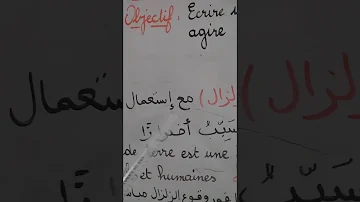 Objectif : Ecrire
agire
لزال) مع إستعمال
أضرارًا
de terre est une
et humaines
فور وقوع الزلزال مباش